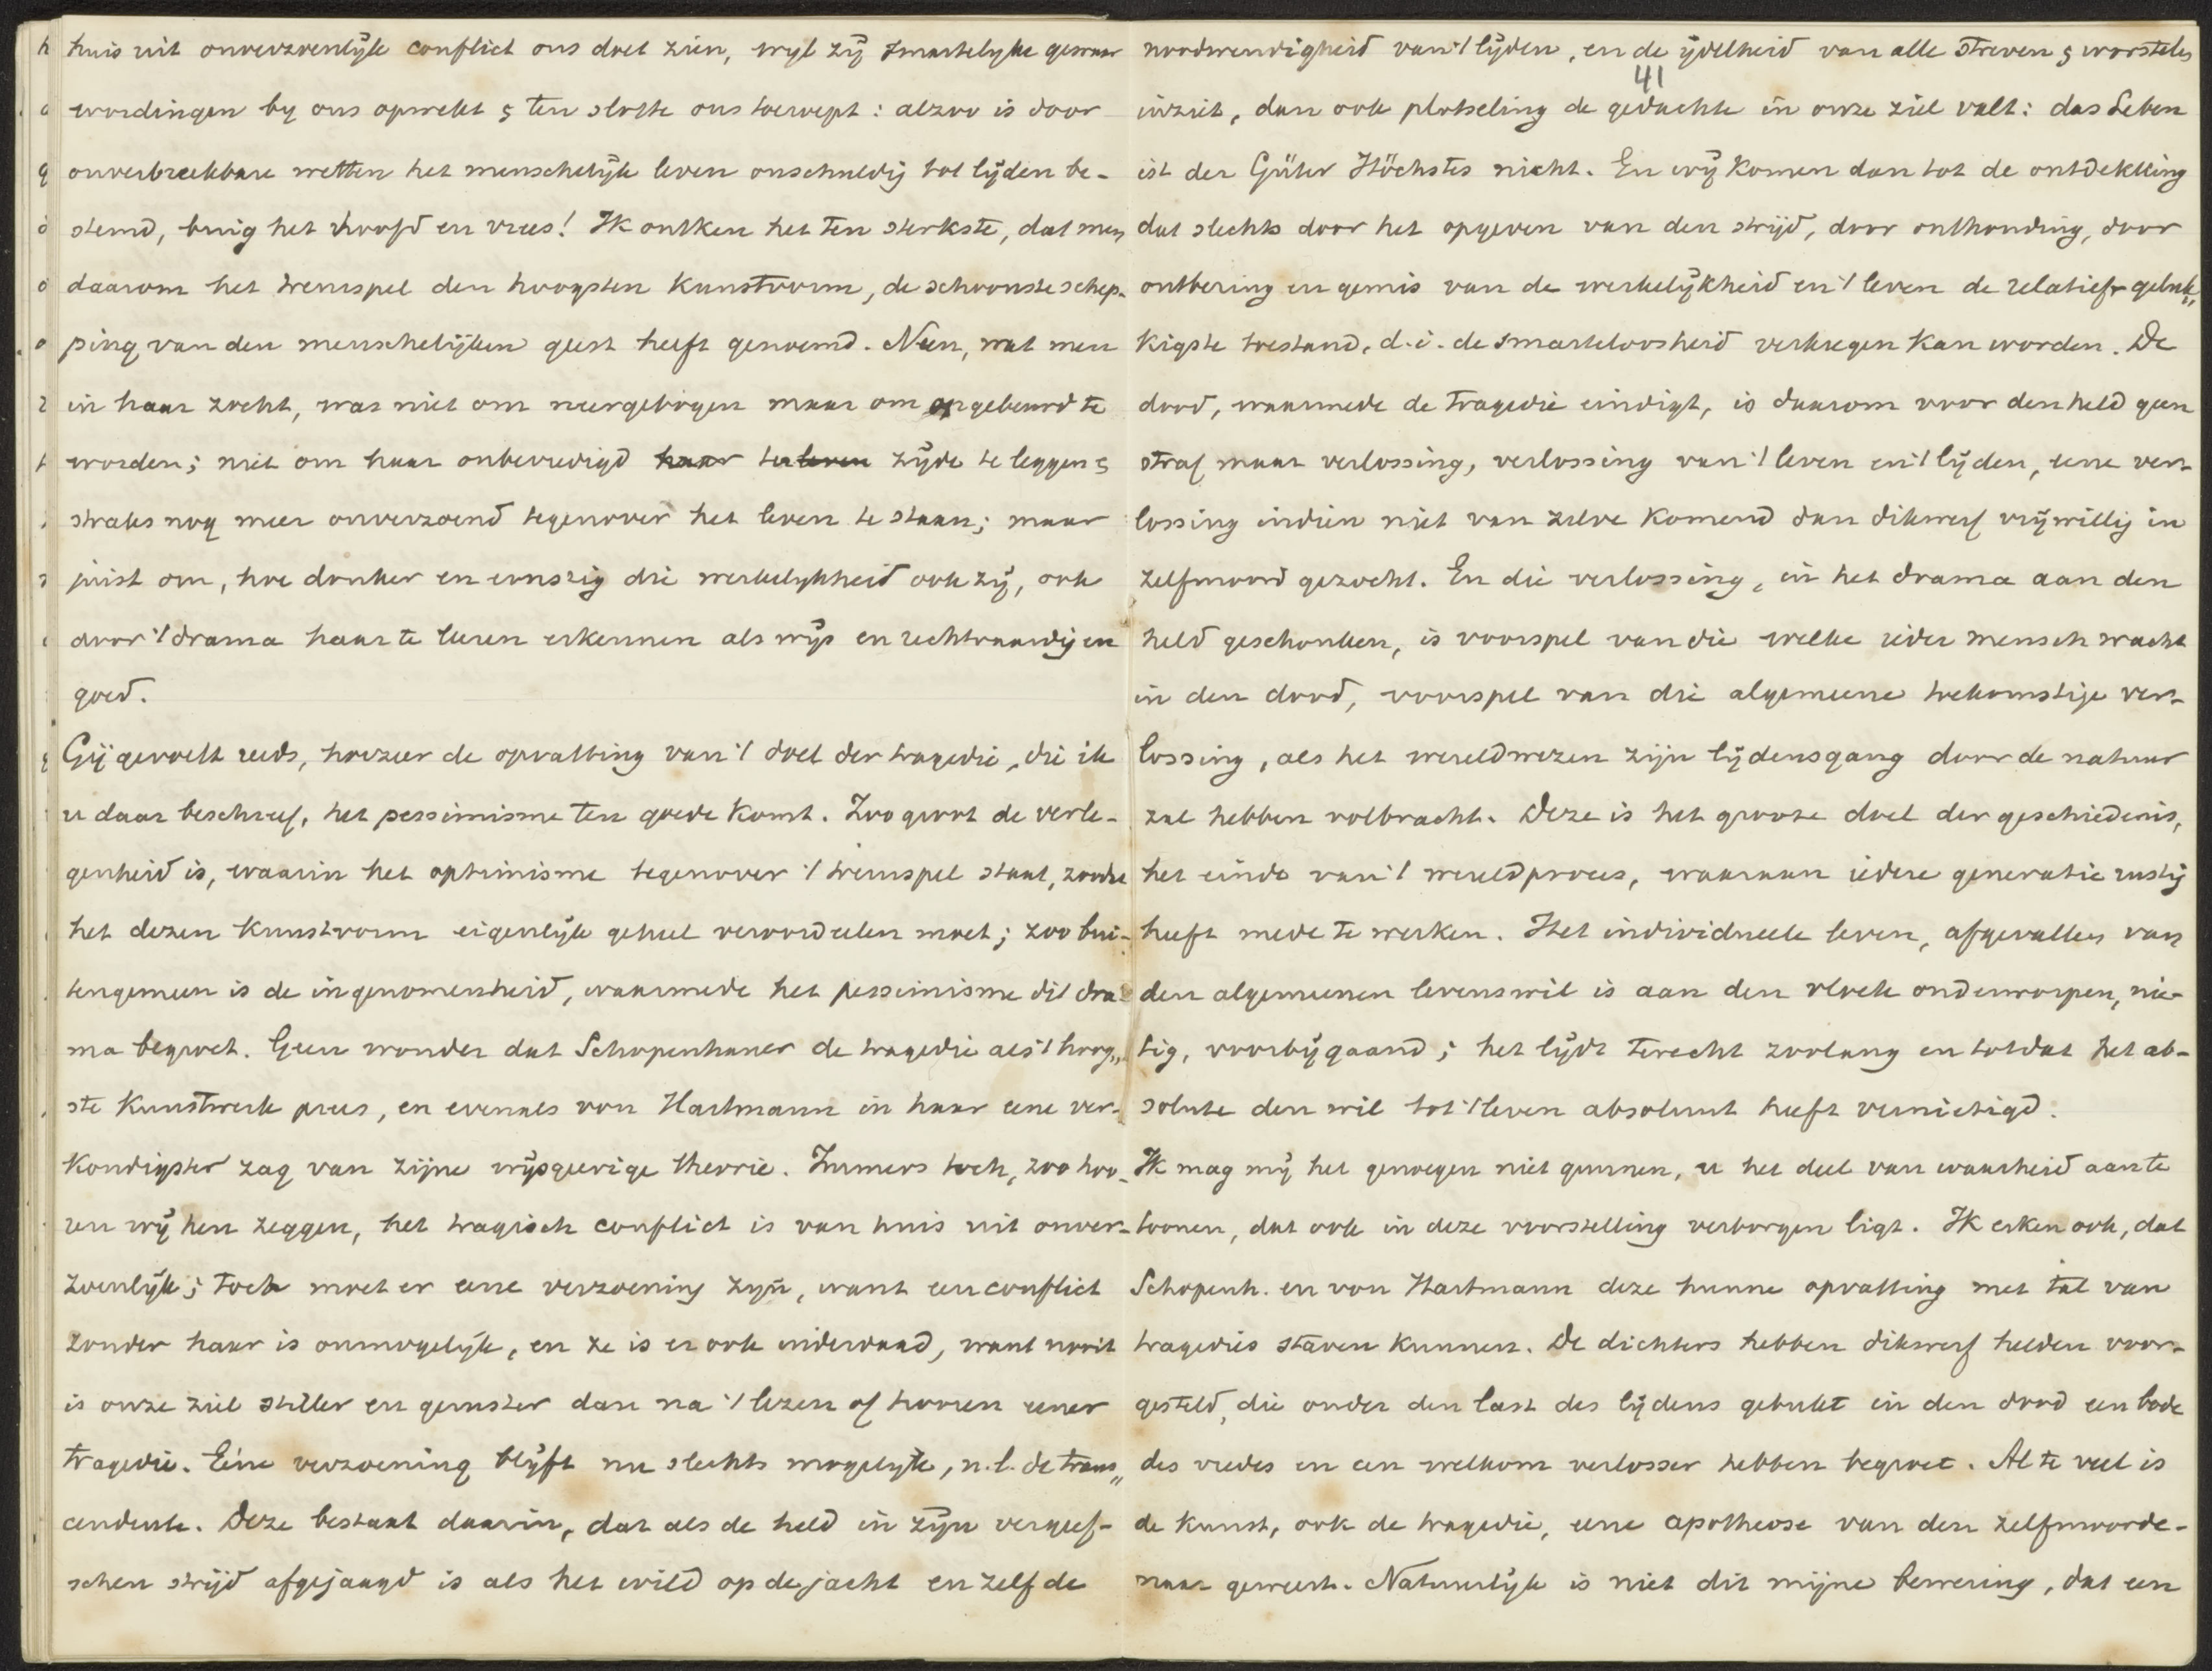 huis uit onverzoenlijk conflict ons doet zien, wyl zij smartelyke gewaar
wordingen by ons opwekt & ten slotte ons toeroept: alzoo is door
onverbreekbare wetten het menschelijk leven onschuldig tot lijden be-
stemd, buig het hoofd en vrees! Ik ontken het ten sterkste, dat men
daarom het treurspel den hoogsten Kunstvorm, de schoonste schep-
ping van den menschelijken geest heeft genoemd. Neen, wat men
in haar zocht, was niet om neergebogen maar om opgebeurd te
worden; niet om haar onbevredigd ter zijde te leggen &
straks nog meer onverzoend tegenover het leven te staan; maar
juist om, hoe donker en ernstig die werkelykheid ook zij, ook
door 't drama haar te leeren erkennen als wijs en rechtvaardig en
goed.
Gij gevoelt reeds, hoezeer de opvatting van 't doel der tragedie, die ik
u daar beschreef, het pessimisme ten goede komt. Zoo groot de verle-
genheid is, waarin het optimisme tegenover 't treurspel staat, zoodra
het dezen Kunstvorm eigenlijk geheel veroordeelen moet; zoo bui-
tengemeen is de ingenomenheid, waarmede het pessimisme dit dra-
ma begroet. Geen wonder dat Schopenhauer de tragedie als 't hoog„
ste Kunstwerk prees, en evenals von Hartmann in haar eene ver-
Kondigster zag van zijne wijsgeerige theorie. Immers toch, zoo hoo-
ren wij hen zeggen, het tragisch conflict is van huis uit onver-
zoenlijk; toch moet er eene verzoening zijn, want een conflict
zonder haar is onmogelijk, en ze is er ook inderdaad, want nooit
is onze ziel stiller en geruster dan na 't lezen of hooren eener
tragedie. Eéne verzoening blijft nu slechts mogelijk, n.l. de trans„
cendente. Deze bestaat daarin, dat als de held in zijn vergeef-
schen strijd afgejaagd is als het wild op de jacht en zelf de
41
noodwendigheid van 't lijden, en de ijdelheid van alle streven & worstelen
inziet, dan ook plotseling de gedachte in onze ziel valt: das Leben
ist der Güter Höchstes nicht. En wij Komen dan tot de ontdekking
dat slechts door het opgeven van den strijd, door onthouding, door
ontbering en gemis van de werkelijkheid en 't leven de relatief geluk„
Kigste toestand, d.i. de smarteloosheid verkregen Kan worden. De
dood, waarmede de tragedie eindigt, is daarom voor den held geen
straf maar verlossing, verlossing van 't leven en 't lijden, eene ver-
lossing indien niet van zelve Komend dan dikwerf vrijwillig in
zelfmoord gezocht. En die verlossing, in het drama aan den
held geschonken, is voorspel van die welke ieder mensch wacht
in den dood, voorspel van die algemeene toekomstige ver-
lossing, als het wereldwezen zijn lijdensgang door de natuur
zal hebben volbracht. Deze is het groote doel der geschiedenis,
het einde van 't wereldproces, waaraan iedere generatie rustig
heeft mede te werken. Het individueele leven, afgevallen van
den algemeenen levenswil is aan den vloek onderworpen, nie-
tig, voorbijgaand; het lijdt terecht zoolang en totdat het ab-
solute den wil tot 't leven absoluut heeft vernietigd.
Ik mag mij het genoegen niet gunnen, u het deel van waarheid aan te
toonen, dat ook in deze voorstelling verborgen ligt. Ik erken ook, dat
Schopenh. en von Hartmann deze hunne opvatting met tal van
tragedies staven Kunnen. De dichters hebben dikwerf helden voor-
gesteld, die onder den last des lijdens gebukt in den dood een bode
des vredes en een welkom verlosser hebben begroet. Al te veel is
de Kunst, ook de tragedie, eene apotheose van den zelfmoorde-
naar geweest. Natuurlijk is niet dit mijne bewering, dat een